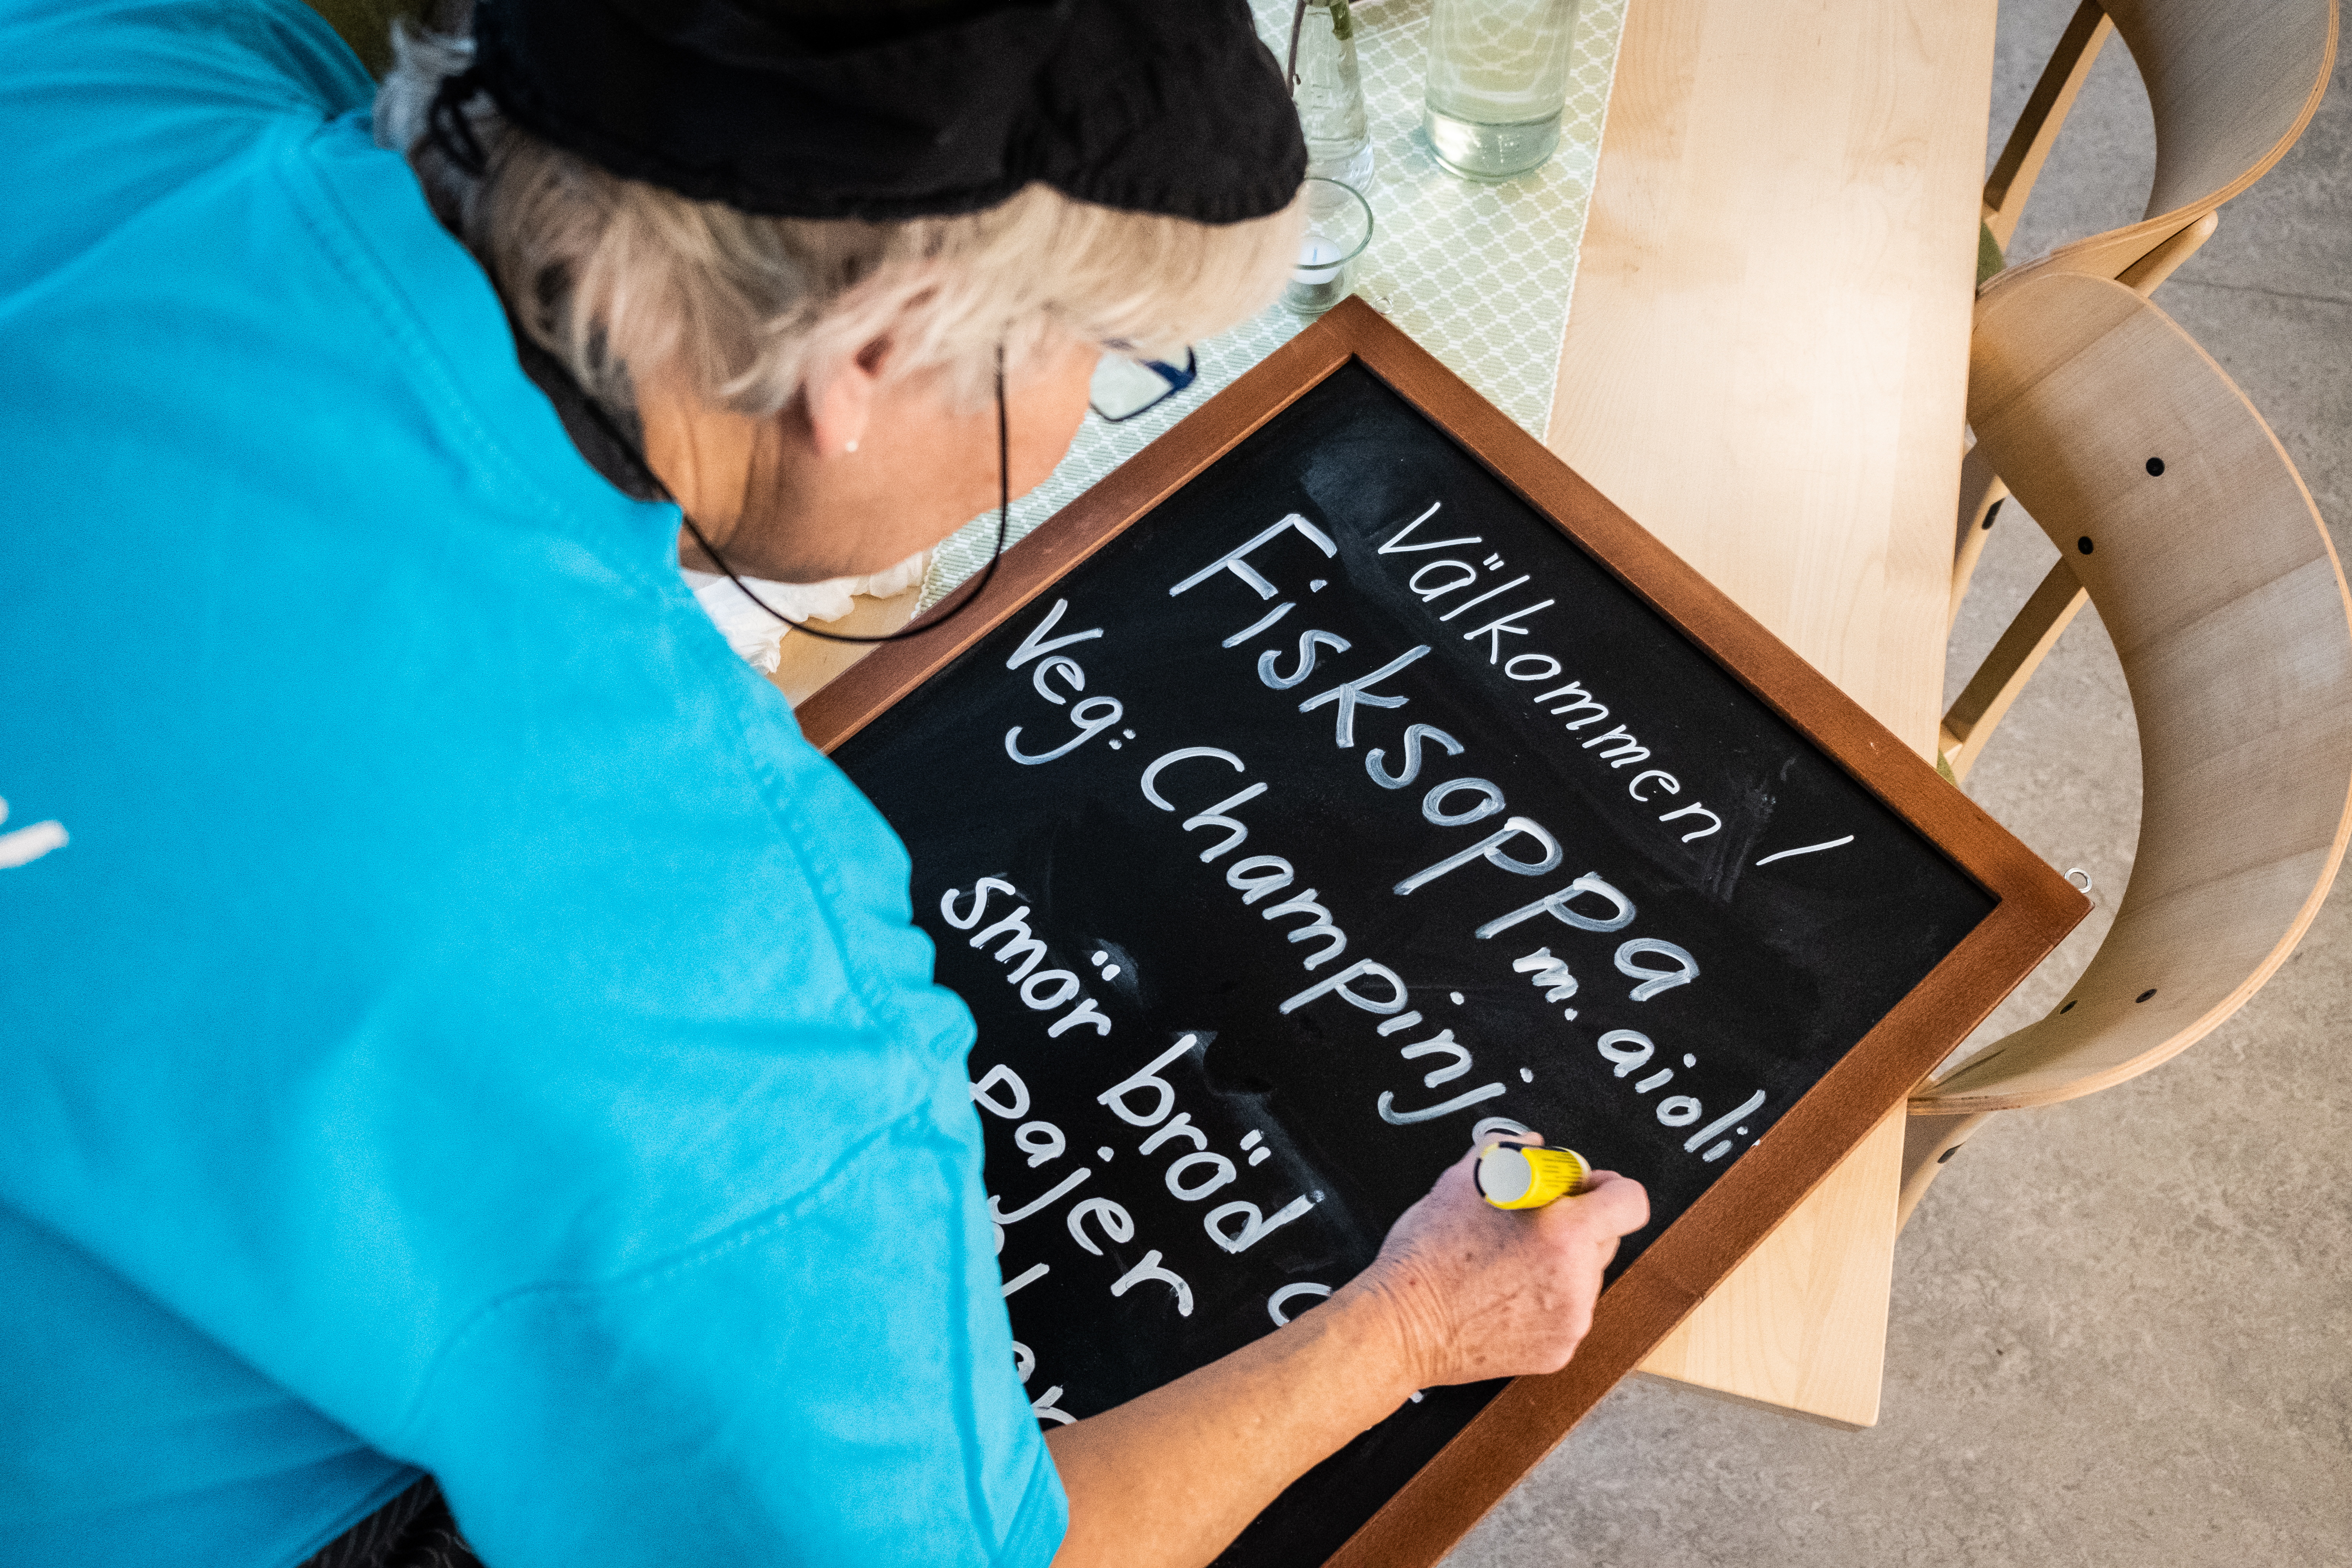 Välkommen!
Fisksoppa
m. aioli
Veg: Champinjo
smör bröd
Pajer